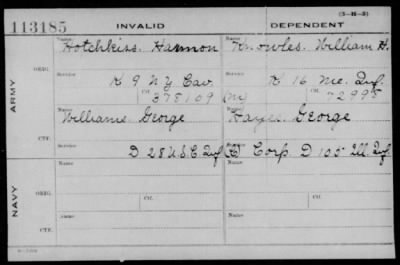 113185 INVALID DEPENDENT (3-16-5)
Name: Name:
Hotchkiss, Harmon Knowles, William H.
ORIG. Service Service
K 9 N Y Cav. K 16 Me. Inf.
Ctf. 378109 (M) Ctf. 72995
ARMY
Name Name
Williams, George Hayes, George
CTF. Service Service
D 28 U.S.C. Inf. Corp. D 105 Ill. Inf.
Name Name
ORIG.
Service Ctf. Service Ctf.
NAVY
Name Name
CTF.
Service Service